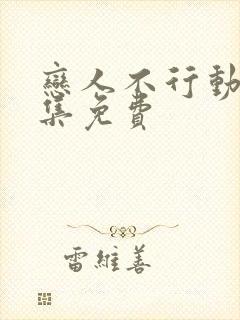 戀人不行動
集免費
雷維善